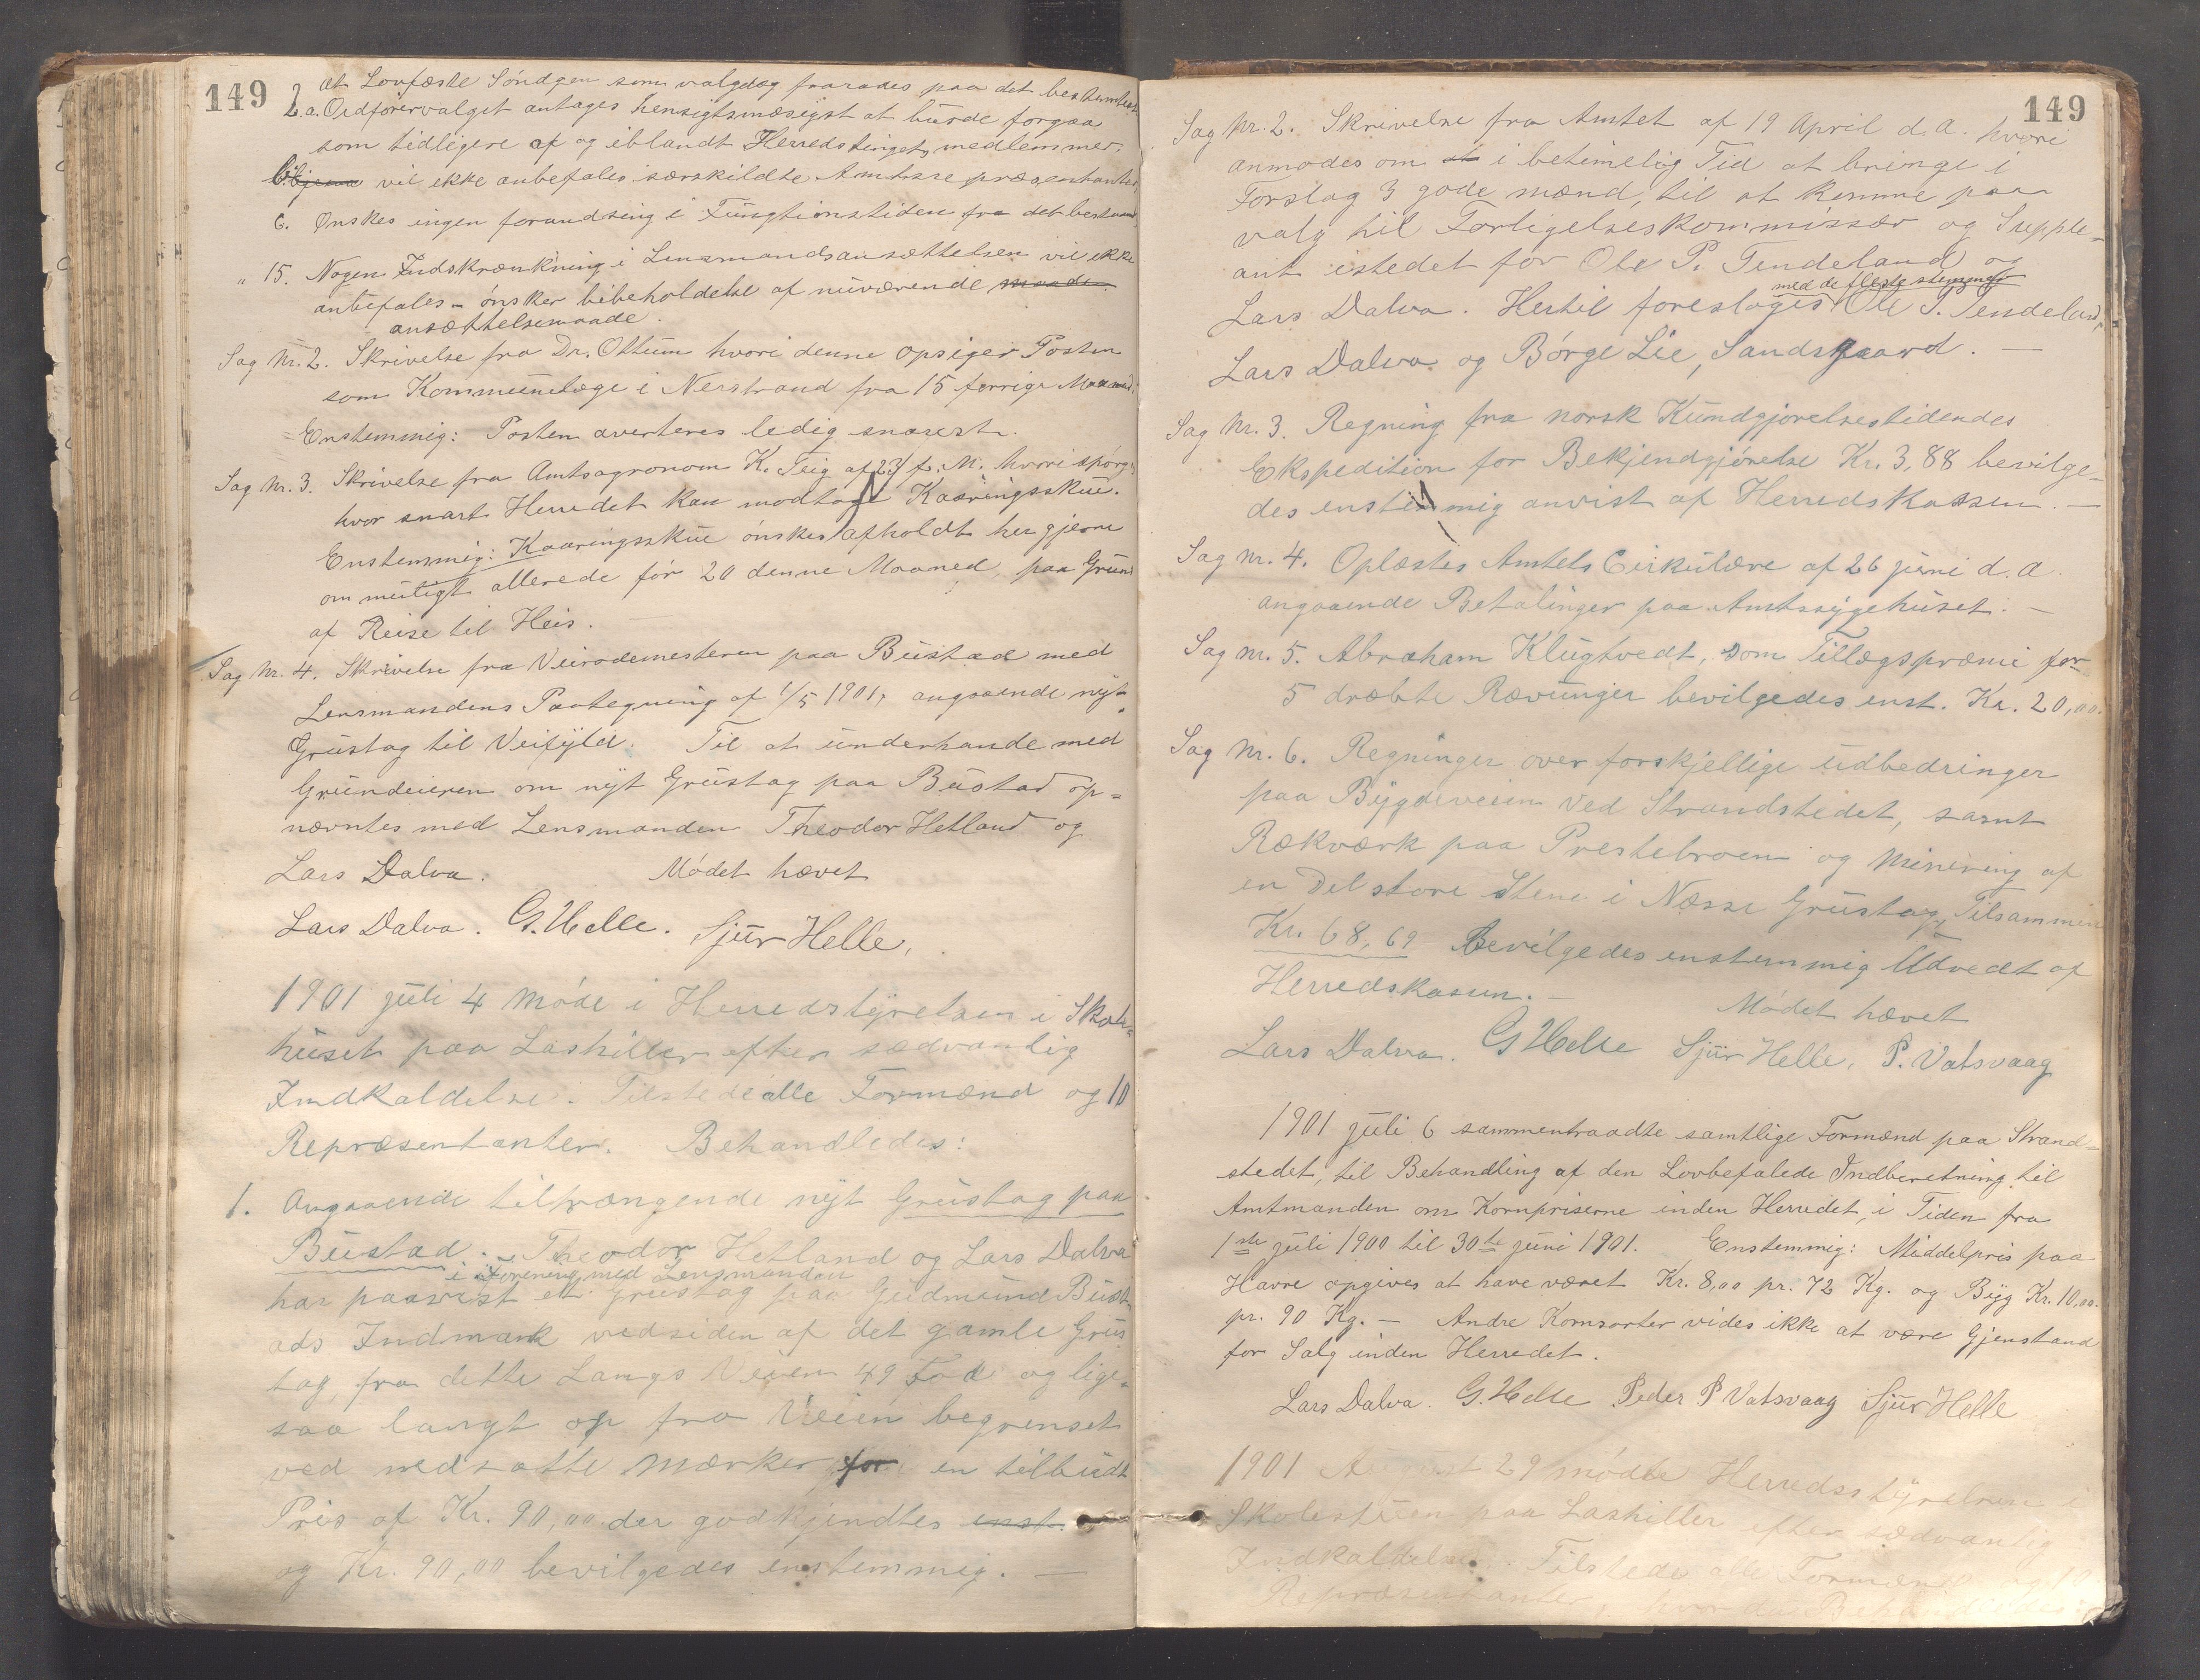 149
at Lovfæste Søndgen som valgdag fraraades paa det bestemteste
2.a. Ordførervalget antages hensigtsmæsigst at burde forgaa
som tidligere af og iblandt Herredstingets medlemmer.
vil ikke anbefales særskildte Amtsre præsentanter
6. Ønskes ingen forandring i Fungtionstiden fra det bestaaende
" 15. Nogen Indskrænkning i Lensmandsansættelsen vil ikke
anbefales - ønsker bibeholdelse af nuværende maade
ansættelsemaade.
Sag Nr. 2. Skrivelse fra Dr. Ottum hvori denne opsiger Posten
som Kommunelæge i Nerstrand fra 15 forrige Maaned:
Enstemmig: Posten averteres ledig snarest.
Sag Nr. 3. Skrivelse fra Amtsagronom K. Teig af 23/ f. M. hvori spørges
hvor snart Herredet kan modtage Kaaringsskue.
Enstemmig: Kaaringsskue ønskes afholdt her gjerne
om muligt allerede før 20 denne Maaned, paa Grund
af Reise til Heis.
Sag Nr. 4. Skrivelse fra Veirodemesteren paa Bustad med
Lensmandens Paategning af 1/5 1901, angaaende nyt
Grustag til Veifyld. Til at underhande med
Grundeieren om nyt Grustag paa Bustad op-
nævntes med Lensmanden Theodor Hetland og
Lars Dalva. Mødet hævet
Lars Dalva. G. Helle. Sjur Helle,
1901 juli 4 Møde i Herredstyrelsen i Skole-
huset paa Lashiller efter sædvanlig
Indkaldelse. Tilstede alle Formænd og 10
Repræsentanter. Behandledes:
1. Angaaende tiltrængende nyt Grustag paa
Bustad. - Theodor Hetland og Lars Dalva
i Forening med Lensmanden
har paavist et Grustag paa Gudmund Bust-
ads Indmark vedsiden af det gamle Grus
tag, fra dette Langs Veien 49 Fod og lige-
saa langt op fra Veien begrenset
ved nedsatte Mærker for en tilbudt
Pris af Kr. 90,00 der godkjendtes enst.
og Kr. 90,00 bevilgedes enstemmig. —
149
Sag Nr. 2. Skrivelse fra Amtet af 19 April d. A. hvori
anmodes om at i betimelig Tid at bringe i
Forslag 3 gode mænd, til at komme paa
valg til Forligelseskommissær og Supple-
ant istedet for Ole P. Tendeland og
med de fleste stemmer
Lars Dalva. Hertil foreslages Ole P. Tendeland,
Lars Dalva og Børge Lie, Sandsgaard. —
Sag Nr. 3. Regning fra norsk Kundgjørelsestidendes
Ekspedition for Bekjendgjørelse Kr. 3,88 bevilge-
des enstemmig anvist af Herredskassen. —
Sag Nr. 4. Oplæstes Amtets Cirkulære af 26 juni d. A.
angaaende Betalinger paa Amtssygehuset. —
Sag Nr. 5. Abraham Klugtvedt, som Tillægspræmi for
5 dræbte Rævunger bevilgedes enst. Kr. 20,00.
Sag Nr. 6. Regninger over forskjellige udbedringer
paa Bygdeveien ved Strandstedet, samt
Rækværk paa Prestebroen og Minering af
en Del store Stene i Næsse Grustag, Tilsammen
Kr. 68,69 Bevilgedes enstemmig Udredt af
Herredskassen. —
Mødet hævet
Lars Dalva. G Helle Sjur Helle, P. Vatsvaag
1901 juli 6 sammentraadte samtlige Formænd paa Strand-
stedet, til Behandling af den Lovbefalede Indberetning til
Amtmanden om Kornpriserne inden Herredet, i Tiden fra
1ste juli 1900 til 30te juni 1901. Enstemmig: Middelpris paa
Havre opgives at have været Kr. 8,00 pr. 72 Kg. og Byg Kr. 10,00.
pr. 90 Kg. — Andre Kornsorter vides ikke at være Gjenstand
for Salg inden Herredet.
Lars Dalva. G. Helle Peder P Vatsvaag Sjur Helle
1901 August 29 mødte Herredsstyrelsen i
Skolestuen paa Lashiller efter sædvanlig
Indkaldelse. Tilstede alle Formænd og 10
Repræsentanter, hvor da Behandledes